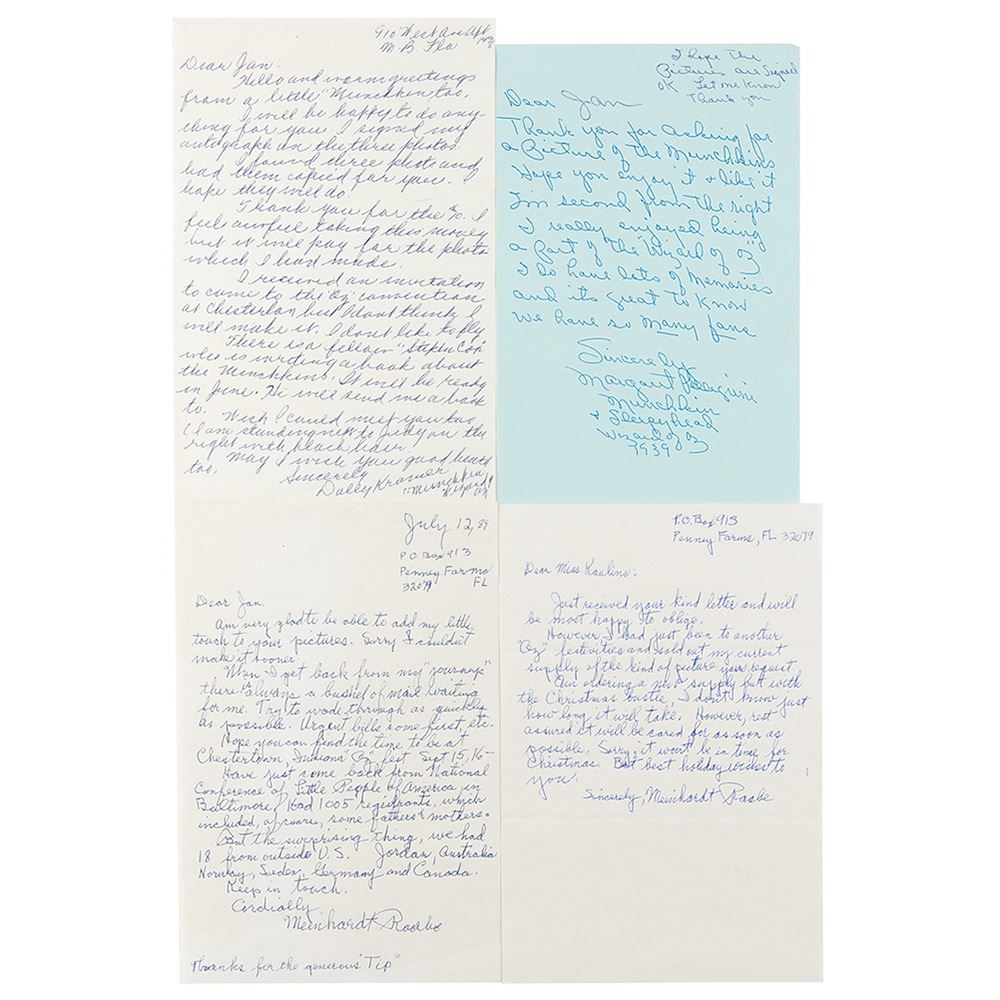 910 West Ave Apt
M B Fla
Dear Jan:
Hello and warm greetings
from a little "Munchkin too.
I will be happy to do any-
thing for you. I signed my
autograph on the three photos
I found three photos and
had them copied for you. I
hope they will do
Thank you for the $10. I
feel awful taking this money
but it will pay for the photos
which I had made.
I received an invitation
to come to the "Oz" convention
at Chesterton but I dont think I
will make it. I dont like to fly
There is a fellow "Stephen Cox"
who is writing a book about
the Munchkins. It will be ready
in June. He will send me a book
too.
Wish I could meet you too
I am standing next to Judy on the
right with black hair.
May I wish you good health
too.
Sincerely
Dolly Kramer
"Munchkin
Wizard of Oz"
I hope The
Pictures are Signed
OK Let me Know
Thank you
Dear Jan
Thank you for asking for
a Picture of The Munchkins
Hope you enjoy it & like it
I'm second from The right
I really enjoyed being
a Part of "The Wizard of Oz"
I do have lots of Memories
and its great To Know
We have so many fans
Sincerely
Margaret Pellegrini
Munchkin
& Sleepyhead
Wizard of Oz
1939
July 12, 89
P.O. Box 913
Penney Farms
32079 FL
Dear Jan,
Am very glad to be able to add my little
touch to your pictures. Sorry I couldn't
make it sooner
When I get back from my "journeys"
there is always a bushel of mail waiting
for me. Try to wade through as quickly
as possible. Urgent bills come first, etc.
Hope you can find the time to be at
Chestertown, Indiana "Oz" fest Sept 15, 16-
Have just come back from National
Conference of Little People of America in
Baltimore. Had 1005 registrants, which
included, of course, some fathers & mothers.
But the surprising thing, we had
18 from outside U.S. Jordan, Australia
Norway, Sweden, Germany and Canada.
Keep in touch.
Cordially
Meinhardt Raabe
Thanks for the generous "Tip"
P.O. Box 913
Penney Farms, FL 32079
Dear Miss Kauline:
Just received your kind letter and will
be most happy to oblige.
However I had just been to another
"Oz" festivities and sold out my current
supply of the kind of picture you request.
Am ordering a new supply but with
the Christmas bustle, I don't know just
how long it will take. However, rest
assured it will be cared for as soon as
possible. Sorry, it won't be in time for
Christmas. But best holiday wishes to
you.
Sincerely, Meinhardt Raabe